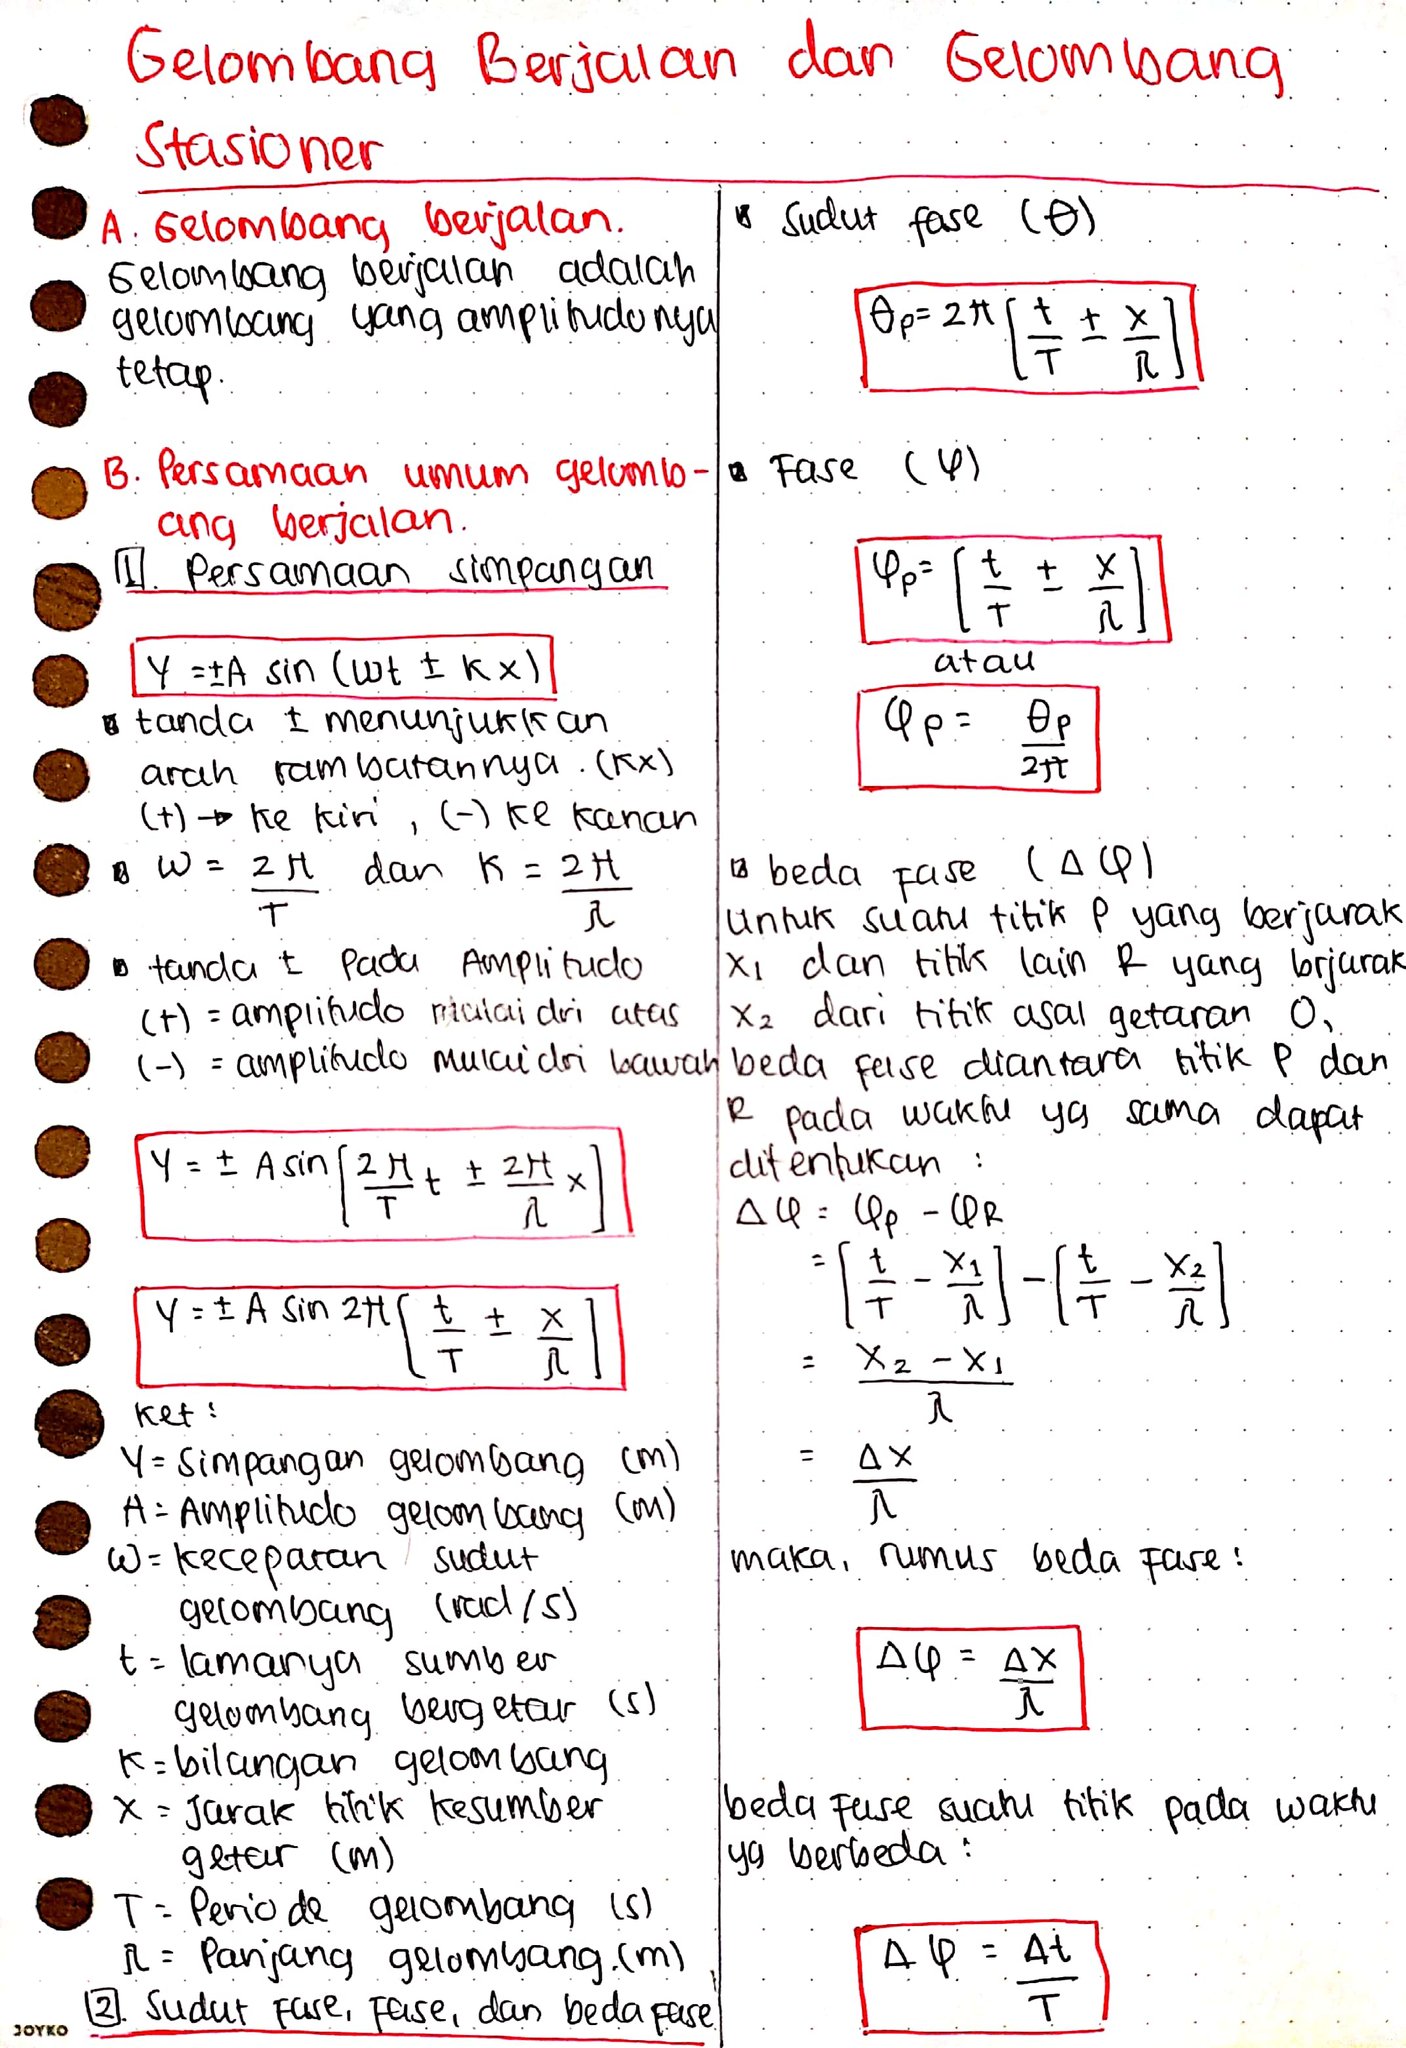 Gelombang Berjalan dan Gelombang
Stasioner
A. Gelombang berjalan.
Gelombang berjalan adalah
gelombang yang amplitudonya
tetap.
B. Persamaan umum gelomb-
ang berjalan.
1. Persamaan simpangan
Y = ±A sin (ωt ± kx)
tanda ± menunjukkan
arah rambatannya. (kx)
(+) → ke kiri, (-) ke kanan
ω = 2π/T dan k = 2π/λ
tanda ± pada Amplitudo
(+) = amplitudo mulai dri atas
(-) = amplitudo mulai dri bawah
Y = ± A sin [2π/T t ± 2π/λ x]
Y = ± A sin 2π [t/T ± x/λ]
ket:
Y = Simpangan gelombang (m)
A = Amplitudo gelombang (m)
ω = kecepatan sudut
gelombang (rad/s)
t = lamanya sumber
gelombang bergetar (s)
k = bilangan gelombang
x = Jarak titik kesumber
getar (m)
T = Periode gelombang (s)
λ = Panjang gelombang. (m)
2. Sudut Fase, Fase, dan beda Fase
JOYKO
Sudut fase (θ)
θp = 2π [t/T ± x/λ]
Fase (φ)
φp = [t/T ± x/λ]
atau
φp = θp/2π
beda Fase (Δφ)
Untuk suatu titik P yang berjarak
x₁ dan titik lain R yang brjarak
x₂ dari titik asal getaran O,
beda fase diantara titik P dan
R pada waktu yg sama dapat
ditentukan :
Δφ = φp - φR
= [t/T - x₁/λ] - [t/T - x₂/λ]
= x₂ - x₁/λ
= Δx/λ
maka, rumus beda Fase :
Δφ = Δx/λ
beda Fase suatu titik pada waktu
yg berbeda :
Δφ = Δt/T